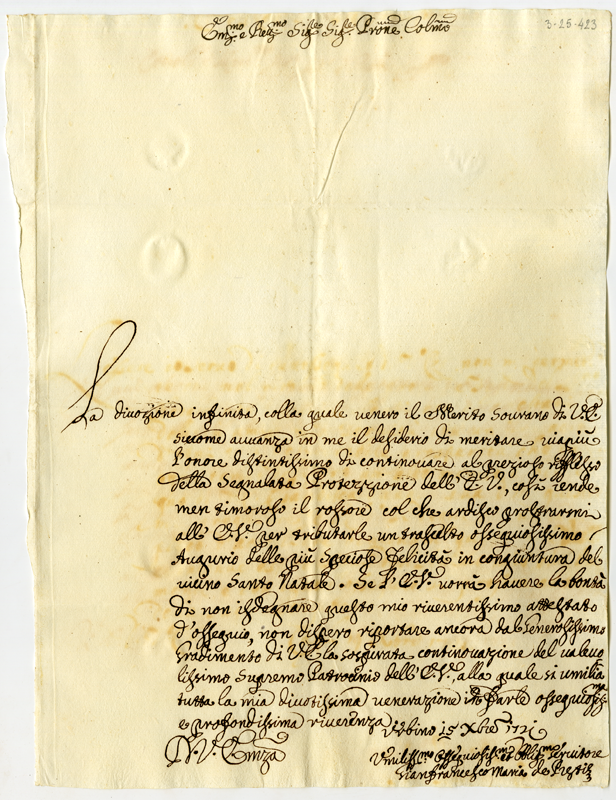 3-25-423
Em.mo e Re.mo Sig.re Sig.re Prone Colmo
La divozione infinita, colla quale venero il Merito Sourano di V.E.
siccome auuanza in me il desiderio di meritare viapiù
l'onore distintissimo di continouare al prezioso riflesso
della Segnalata Protezzione dell'E.V., così rende
men timoroso il rossore col che ardisco prostrarmi
all'E.V. per tributarle un trascelto ossequiosissimo
Augurio delle più Speciose felicità in congiuntura del
vicino Santo Natale. Se l'E.V. vorrà hauere la bontà
di non isdegnare questo mio riuerentissimo attestato
d'ossequio, non dispero riportare ancora dal Generosissimo
Gradimento di V.E. la sospirata continouazione del valeuo
lissimo Supremo Patrocinio dell'E.V., alla quale si umilia
tutta la mia diuotissima venerazione in farle ossequiosissma
e profondissima riuerenza
Urbino 15 Xbre 1721
D.V. Emza
Umiliss.mo Ossequiosiss.mo et Obligmo Seruitore
Gianfrancesco Maria de